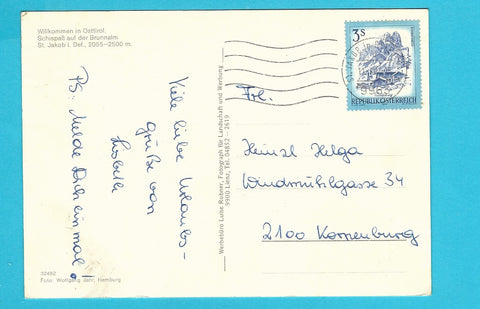 Willkommen in Osttirol.
Schispaß auf der Brunnalm
St. Jakob i. Def., 2055–2500 m.
Viele liebe Urlaubs-
grüße von
PS: Melde Dich einmal!
32492
Foto: Wolfgang Jahr, Hamburg
Werbebüro Luise Rubner, Fotograf für Landschaft und Werbung
9900 Lienz, Tel. 04852 - 2619
3S
REPUBLIK ÖSTERREICH
9963
Frl.
Heinzl Helga
Windmühlgasse 34
2100 Korneuburg